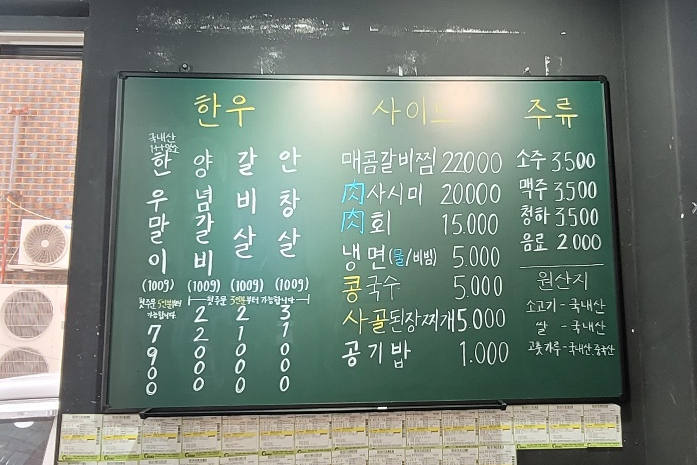 한우
국내산
1++암소
한우말이
(100g)
첫주문 5인분부터
가능합니다.
7900
양념갈비
(100g)
22000
갈비살
(100g)
21000
안창살
(100g)
31000
첫주문 3인분부터 가능합니다.
사이드
매콤갈비찜 22000
肉사시미 20000
肉회 15.000
냉면(물/비빔) 5.000
콩국수 5.000
사골된장찌개 5.000
공기밥 1.000
주류
소주 3500
맥주 3500
청하 3500
음료 2000
원산지
소고기-국내산
쌀 -국내산
고춧가루-국내산.중국산